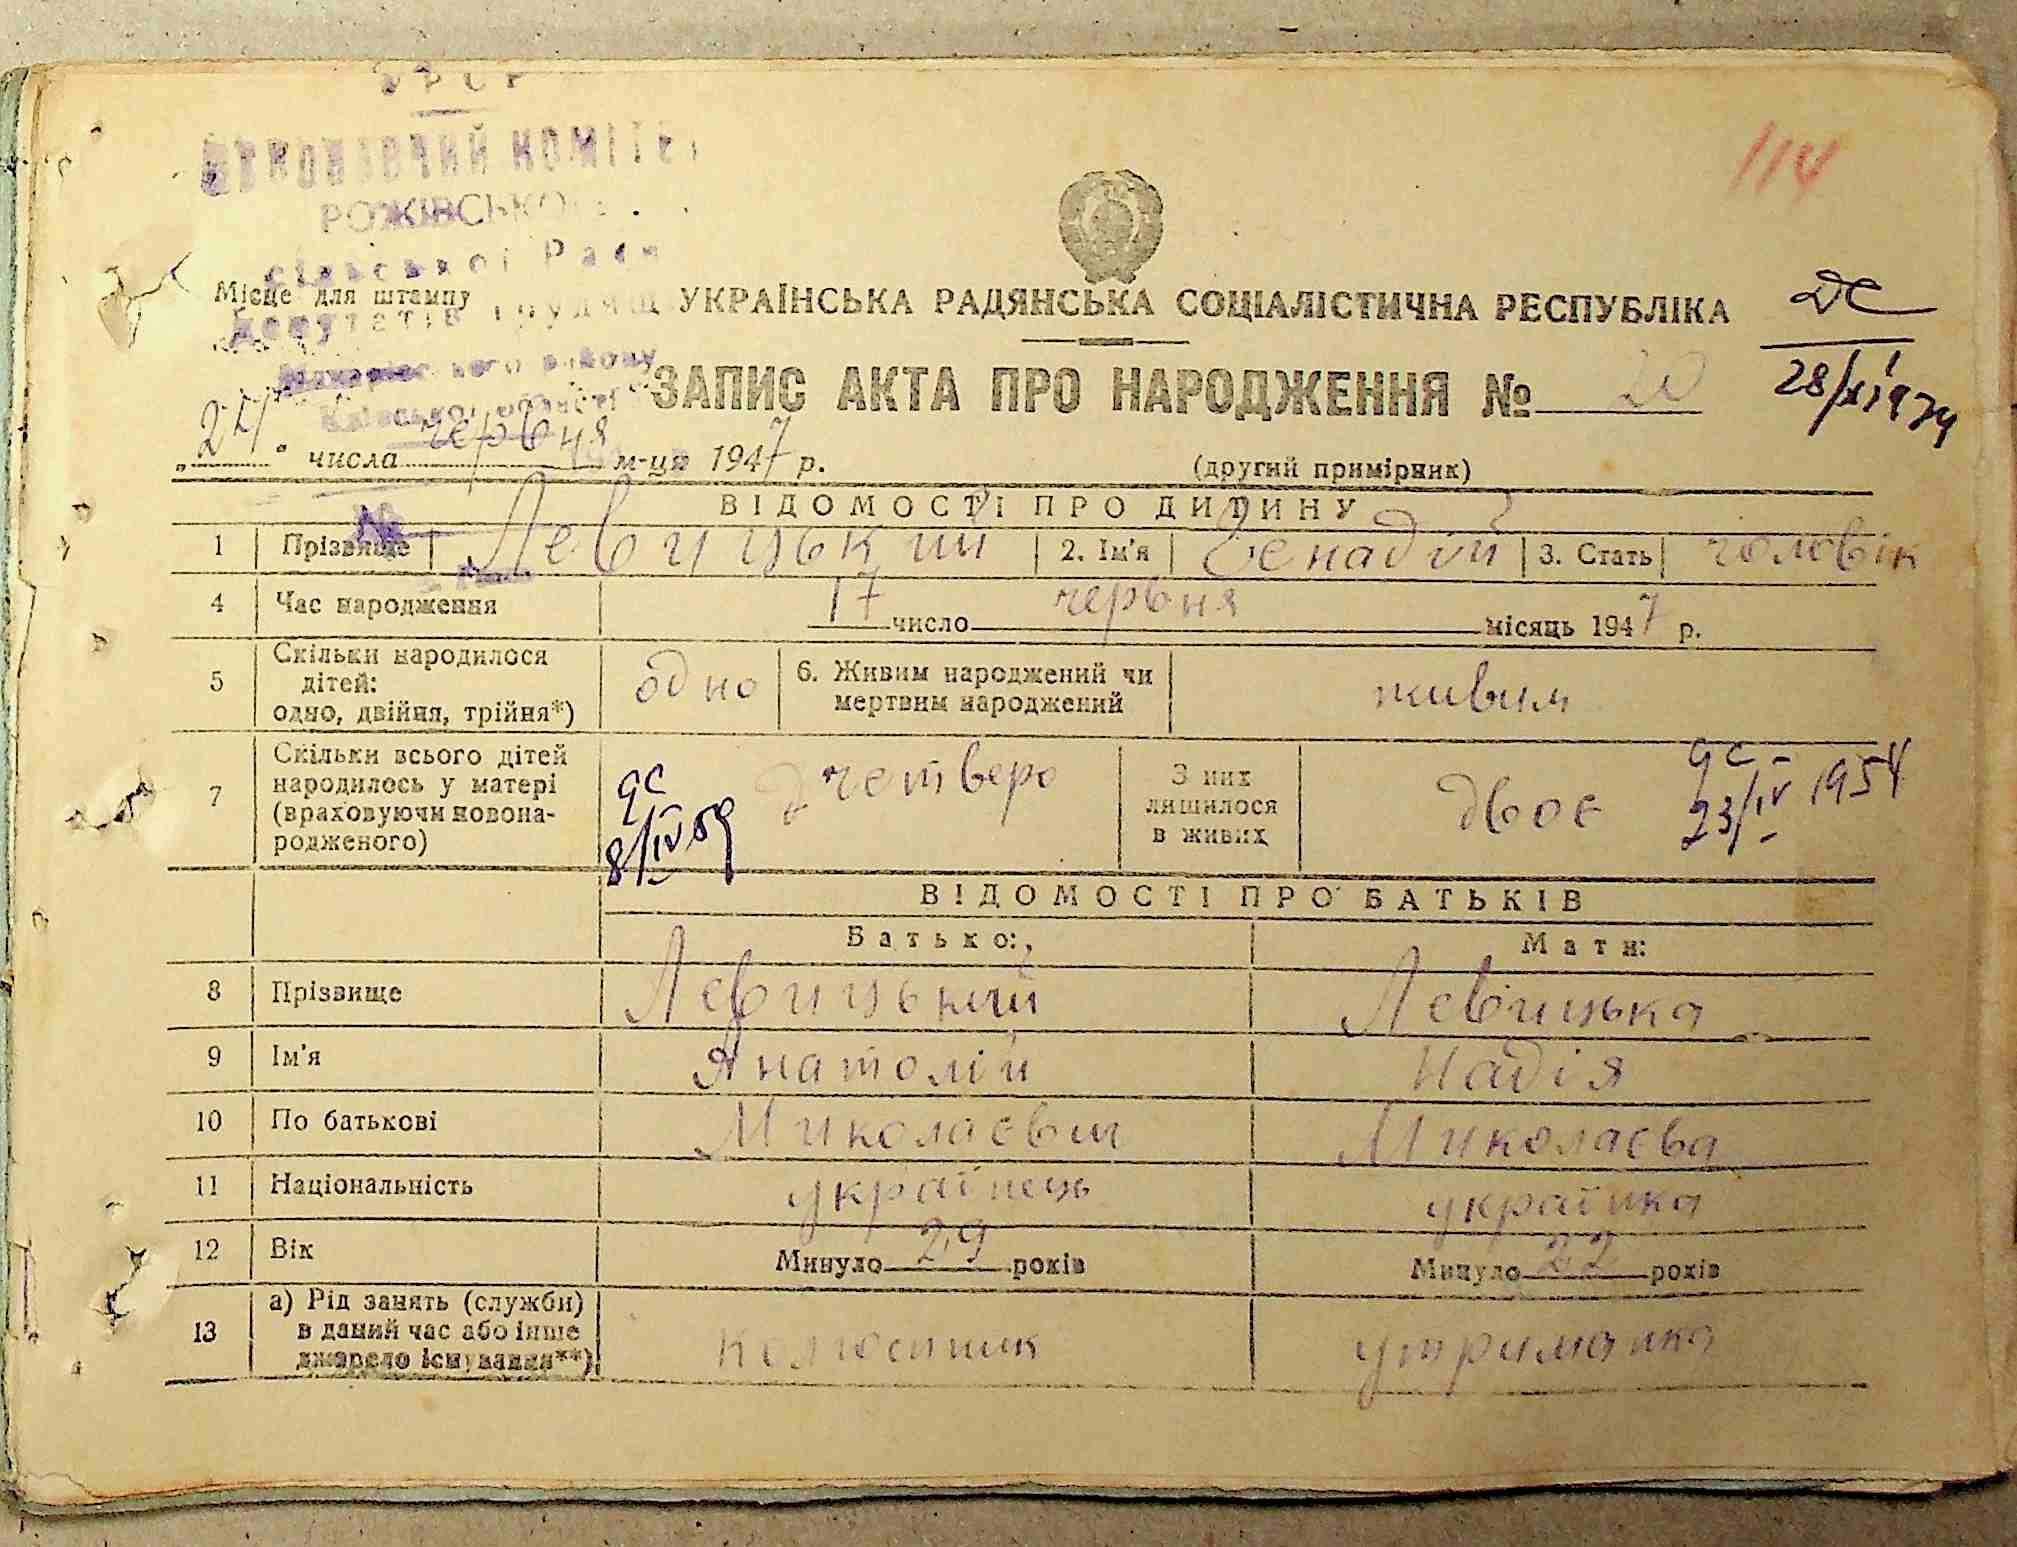 УРСР
ВИКОНАВЧИЙ КОМІТЕТ
РОЖІВСЬКОЇ
сільської Ради
депутатів трудящ
Макарівського району
Київської області
114
Місце для штампу
УКРАЇНСЬКА РАДЯНСЬКА СОЦІАЛІСТИЧНА РЕСПУБЛІКА
ДС
ЗАПИС АКТА ПРО НАРОДЖЕННЯ № 20
28/XI 1974
" числа червня м-ця 1947 р.
(другий примірник)
ВІДОМОСТІ ПРО ДИТИНУ
1 Прізвище Левицький 2. Ім'я Генадій 3. Стать чоловік
4 Час народження 17 число червня місяць 1947 р.
5 Скільки народилося дітей: одно, двійня, трійня*) одно 6. Живим народжений чи мертвим народжений живим
7 Скільки всього дітей народилось у матері (враховуючи новонародженого) четверо З них лишилося в живих двоє
дс 8/IV 59
дс 23/IV 1954
ВІДОМОСТІ ПРО БАТЬКІВ
Батько: Мати:
8 Прізвище Левицький Левицька
9 Ім'я Анатолій Надія
10 По батькові Миколаєвич Миколаєва
11 Національність українець українка
12 Вік Минуло 29 років Минуло 22 років
13 а) Рід занять (служби) в даний час або інше джерело існування**) колгоспник утриманка